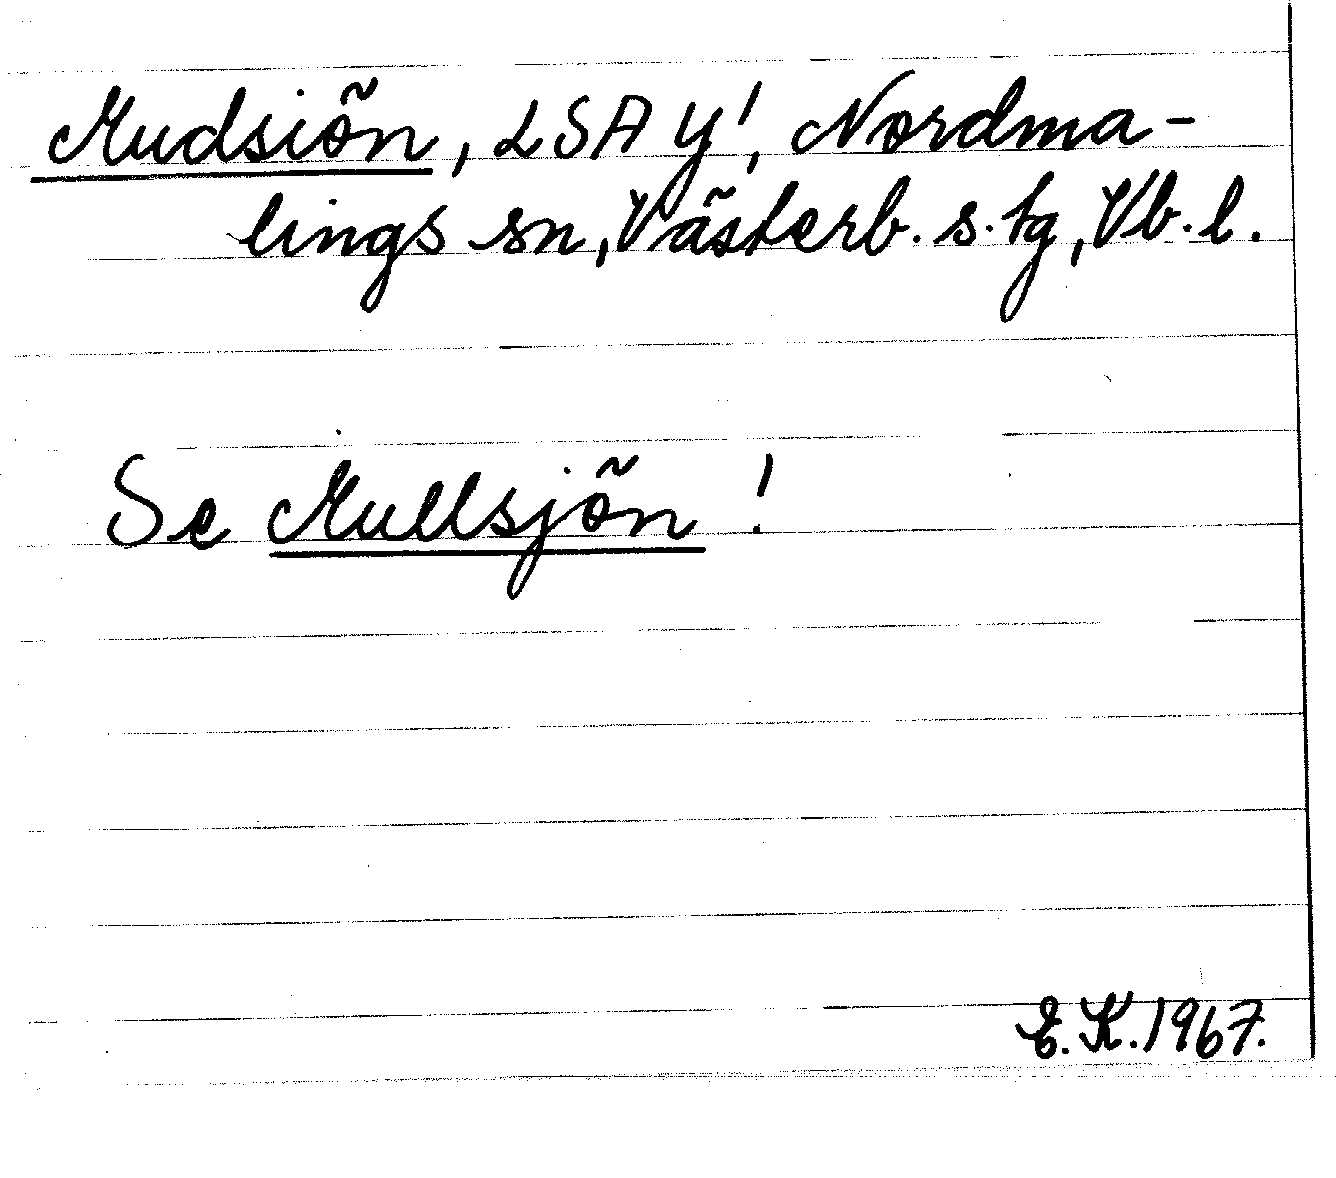 Mudsiön, LSA Y¹, Nordma-
lings sn, Västerb. s. tg, Vb. l.
Se Mullsjön !
E. K. 1967.